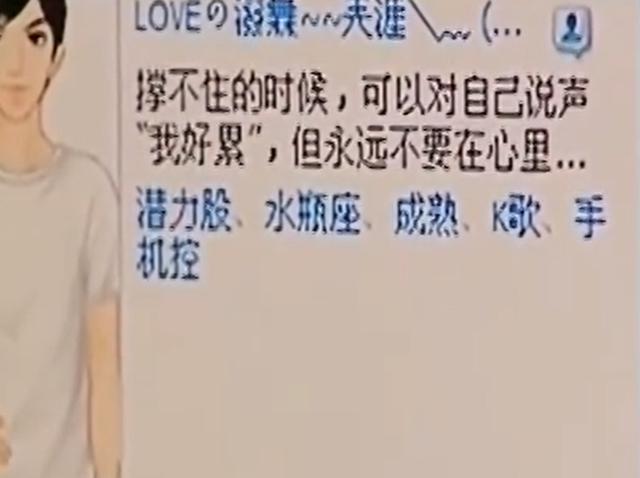 LOVEの溺爱~~天涯╲﹏(...
撑不住的时候，可以对自己说声
“我好累”，但永远不要在心里...
潜力股、水瓶座、成熟、K歌、手
机控